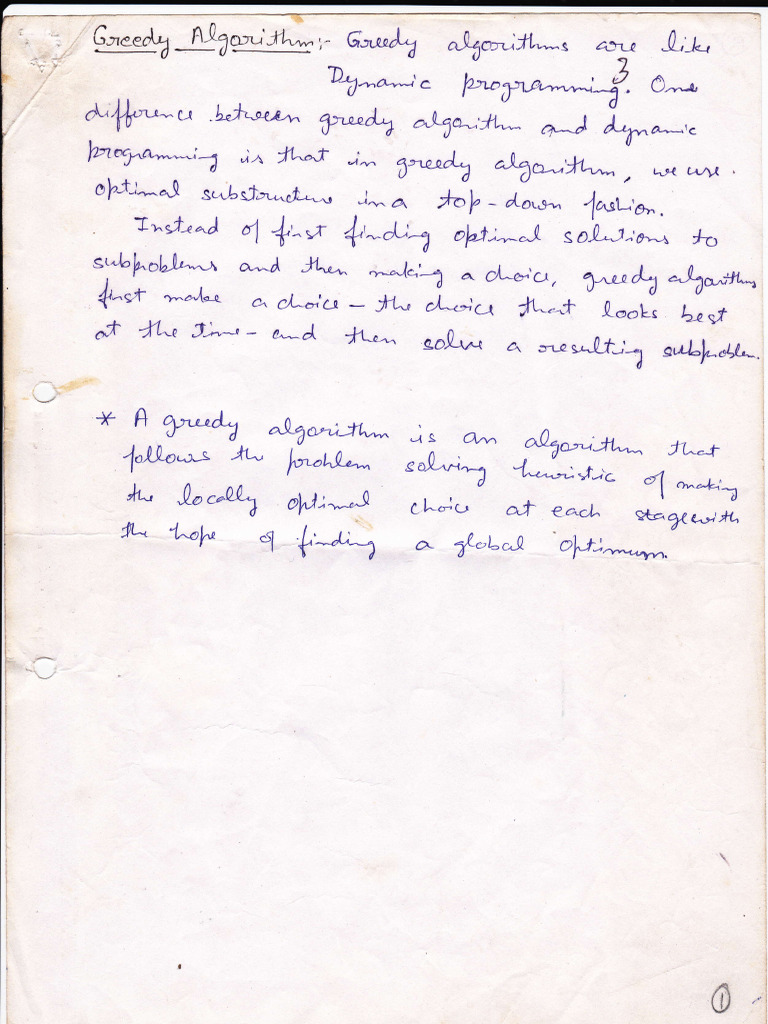 Greedy Algorithm:- Greedy algorithms are like
Dynamic programming. One
3
difference between greedy algorithm and dynamic
programming is that in greedy algorithm, we use
optimal substructure in a top-down fashion.
Instead of first finding optimal solutions to
subproblems and then making a choice, greedy algorithms
first make a choice - the choice that looks best
at the time - and then solve a resulting subproblem.
* A greedy algorithm is an algorithm that
follows the problem solving heuristic of making
the locally optimal choice at each stage with
the hope of finding a global optimum.
1